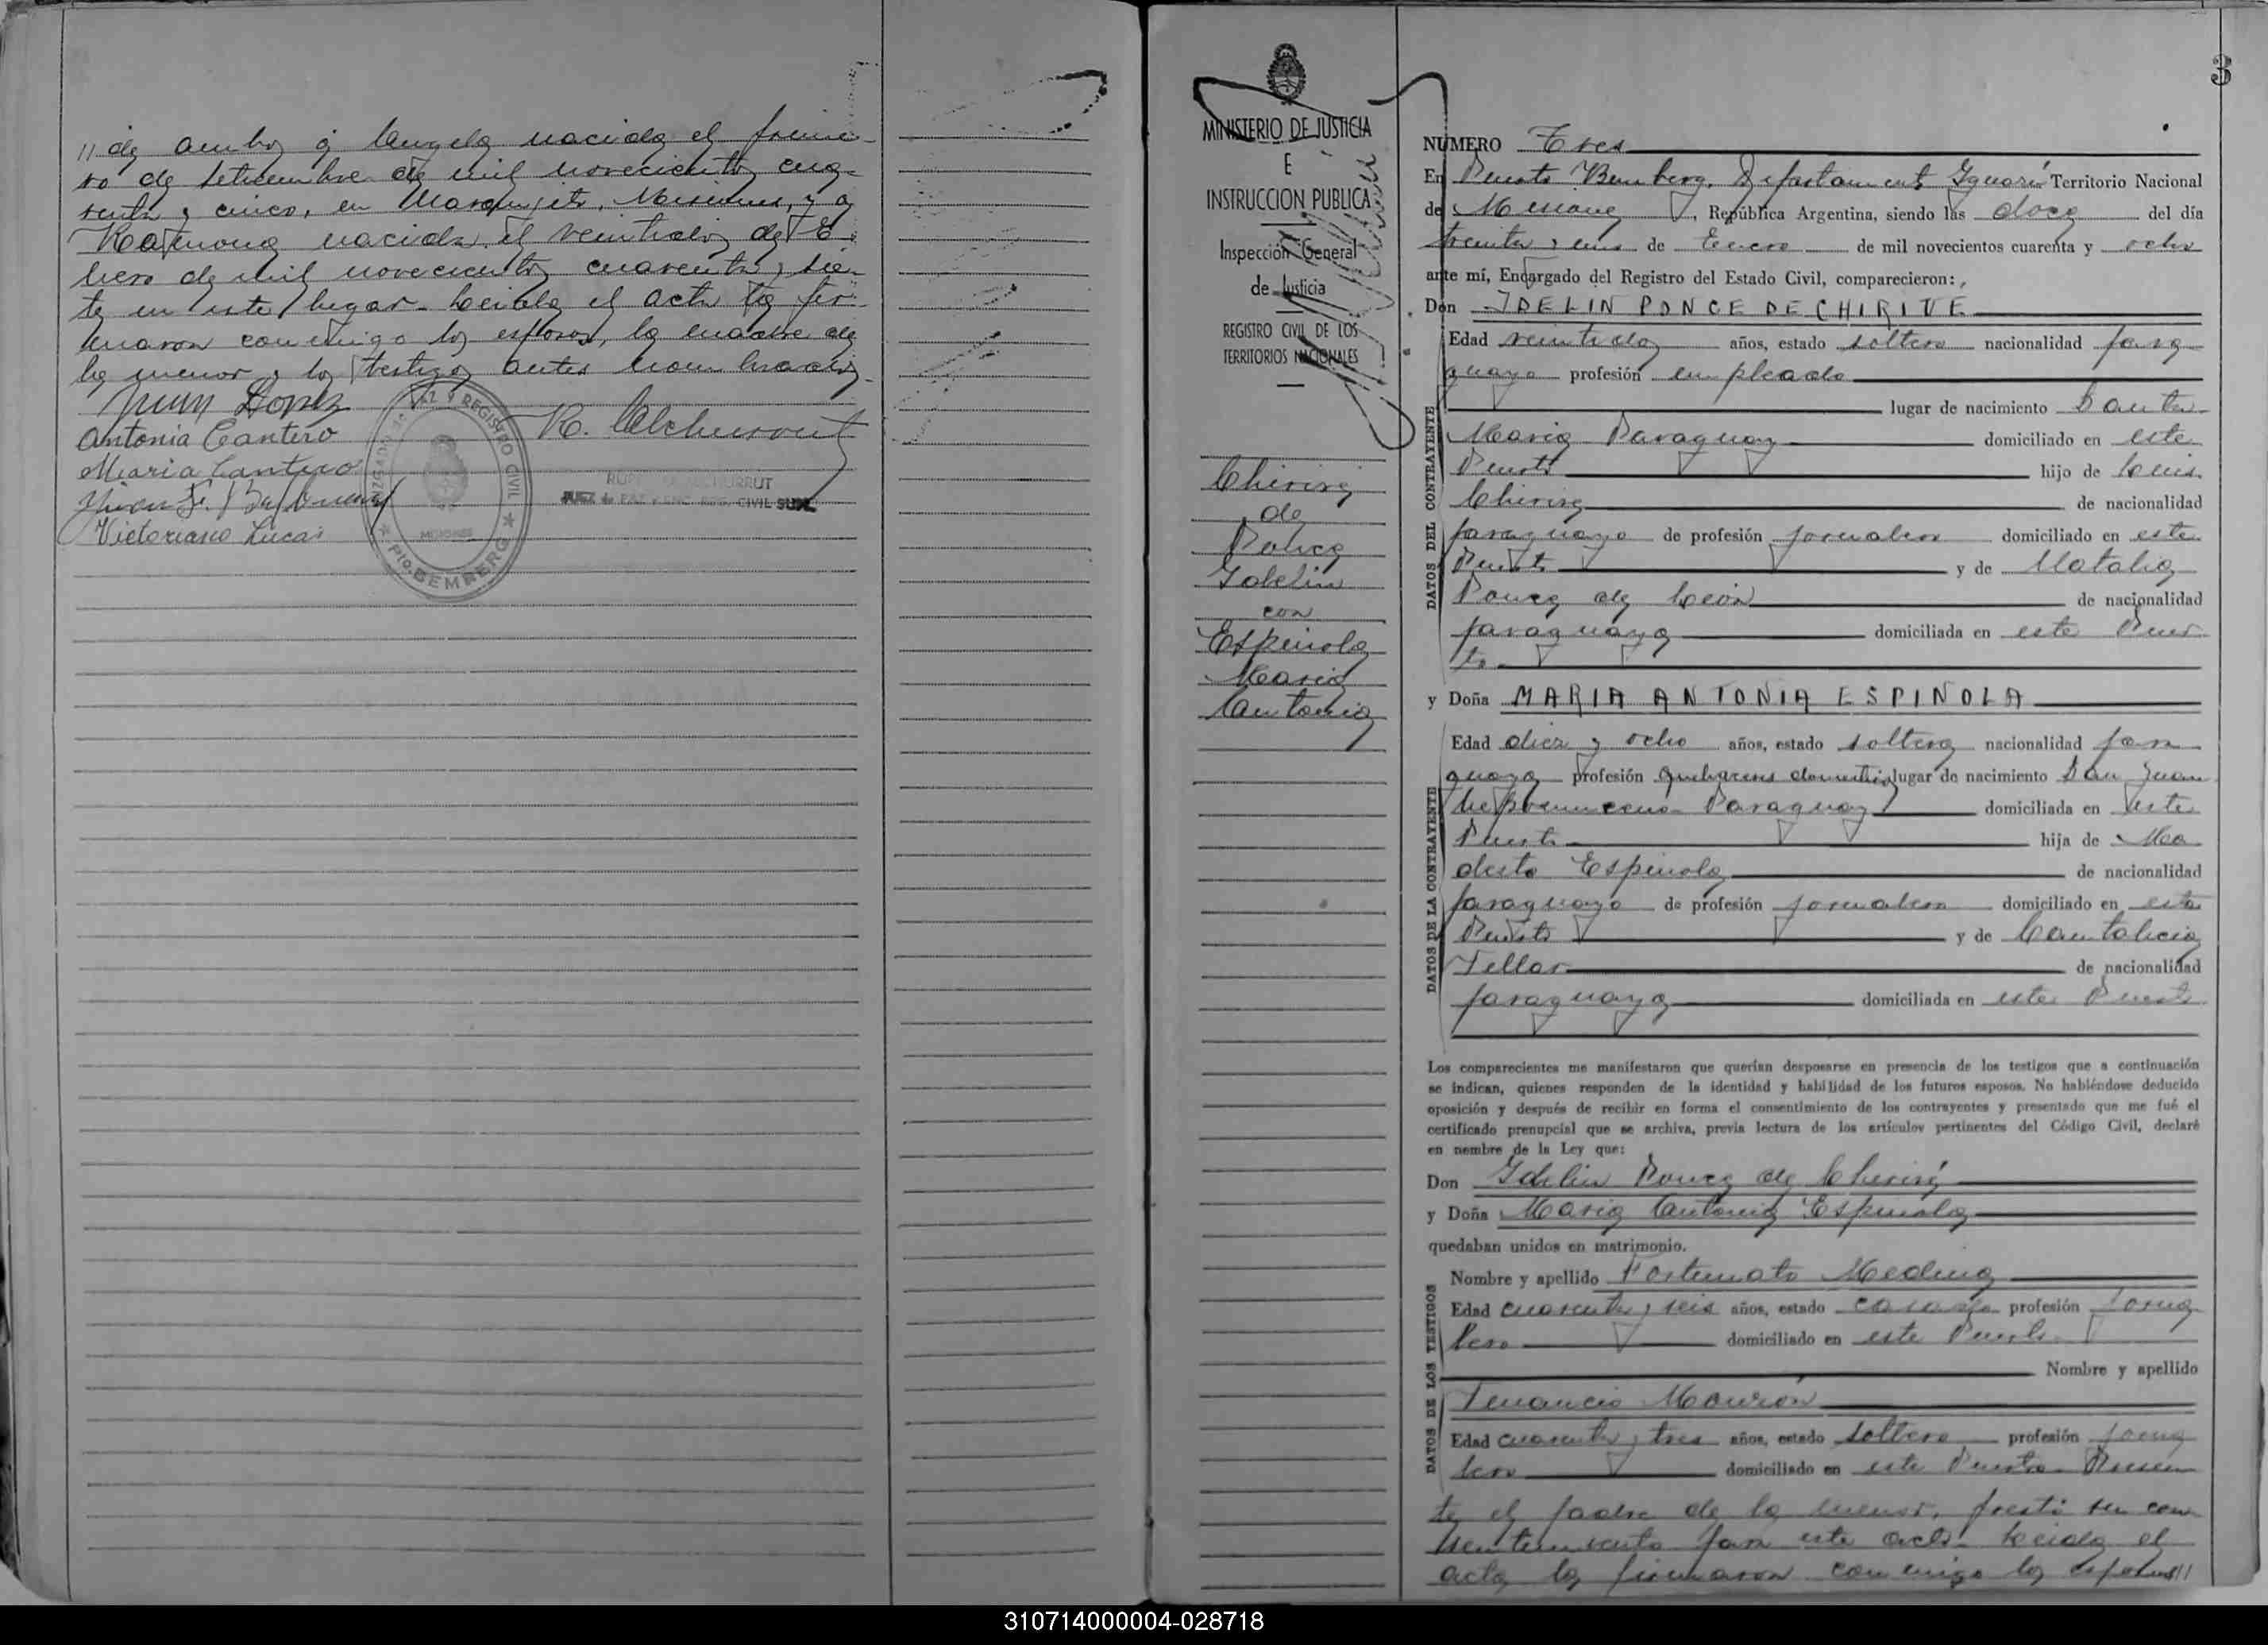 // de ambos a Angela nacida el prime-
ro de setiembre de mil novecientos cua-
renta y cinco, en Misiones, y a
Ramona nacida el veintidos de E-
nero de mil novecientos cuarenta y sie-
te en este lugar. Leida el acta la fir-
maron conmigo los esposos, la madre de
la menor y los testigos antes nombrados.
Juan Lopez
Antonia Cantero
Maria Cantero
Victoriano Lucas
JUZGADO DE PAZ Y REGISTRO CIVIL
MISIONES
★ Pto. BEMBERG ★
JUEZ de PAZ y ENC. REG. CIVIL SUPL.
3
MINISTERIO DE JUSTICIA
E
INSTRUCCION PUBLICA
Inspección General
de Justicia
REGISTRO CIVIL DE LOS
TERRITORIOS NACIONALES
Chirive
de
Ponce
Idelin
con
Espinola
Maria
Antonia
NUMERO Tres
En Puerto Bemberg, Departamento Iguazú Territorio Nacional
de Misiones, República Argentina, siendo las doce del día
treinta y uno de Enero de mil novecientos cuarenta y ocho
ante mí, Encargado del Registro del Estado Civil, comparecieron:
Don IDELIN PONCE DE CHIRIVE
DATOS DEL CONTRAYENTE
Edad veintidos años, estado soltero nacionalidad para-
guayo profesión empleado
lugar de nacimiento Santa
Maria Paraguay domiciliado en este
Puerto hijo de Luis
Chirive de nacionalidad
paraguayo de profesión jornalero domiciliado en este
Puerto y de Natalia
Ponce de León de nacionalidad
paraguaya domiciliada en este Puer-
to
y Doña MARIA ANTONIA ESPINOLA
DATOS DE LA CONTRAYENTE
Edad diez y ocho años, estado soltera nacionalidad para-
guaya profesión quehaceres domesticos lugar de nacimiento San Juan
Nepomuceno Paraguay domiciliada en este
Puerto hija de Mo-
desto Espinola de nacionalidad
paraguayo de profesión jornalero domiciliado en este
Puerto y de Cantalicia
Tellar de nacionalidad
paraguaya domiciliada en este Puerto
Los comparecientes me manifestaron que querían desposarse en presencia de los testigos que a continuación
se indican, quienes responden de la identidad y habilidad de los futuros esposos. No habiéndose deducido
oposición y después de recibir en forma el consentimiento de los contrayentes y presentado que me fué el
certificado prenupcial que se archiva, previa lectura de los artículos pertinentes del Código Civil, declaré
en nombre de la Ley que:
Don Idelin Ponce de Chirivé
y Doña Maria Antonia Espinola
quedaban unidos en matrimonio.
DATOS DE LOS TESTIGOS
Nombre y apellido Fortunato Medina
Edad cuarenta y seis años, estado casado profesión Jorna-
lero domiciliado en este Puerto
Nombre y apellido
Venancio
Edad cuarenta y tres años, estado soltero profesión jorna-
lero domiciliado en este Puerto. Presen-
te el padre de la menor, prestó su con-
sentimiento para este acto. Leida el
acta la firmaron conmigo los esposos//
310714000004-028718